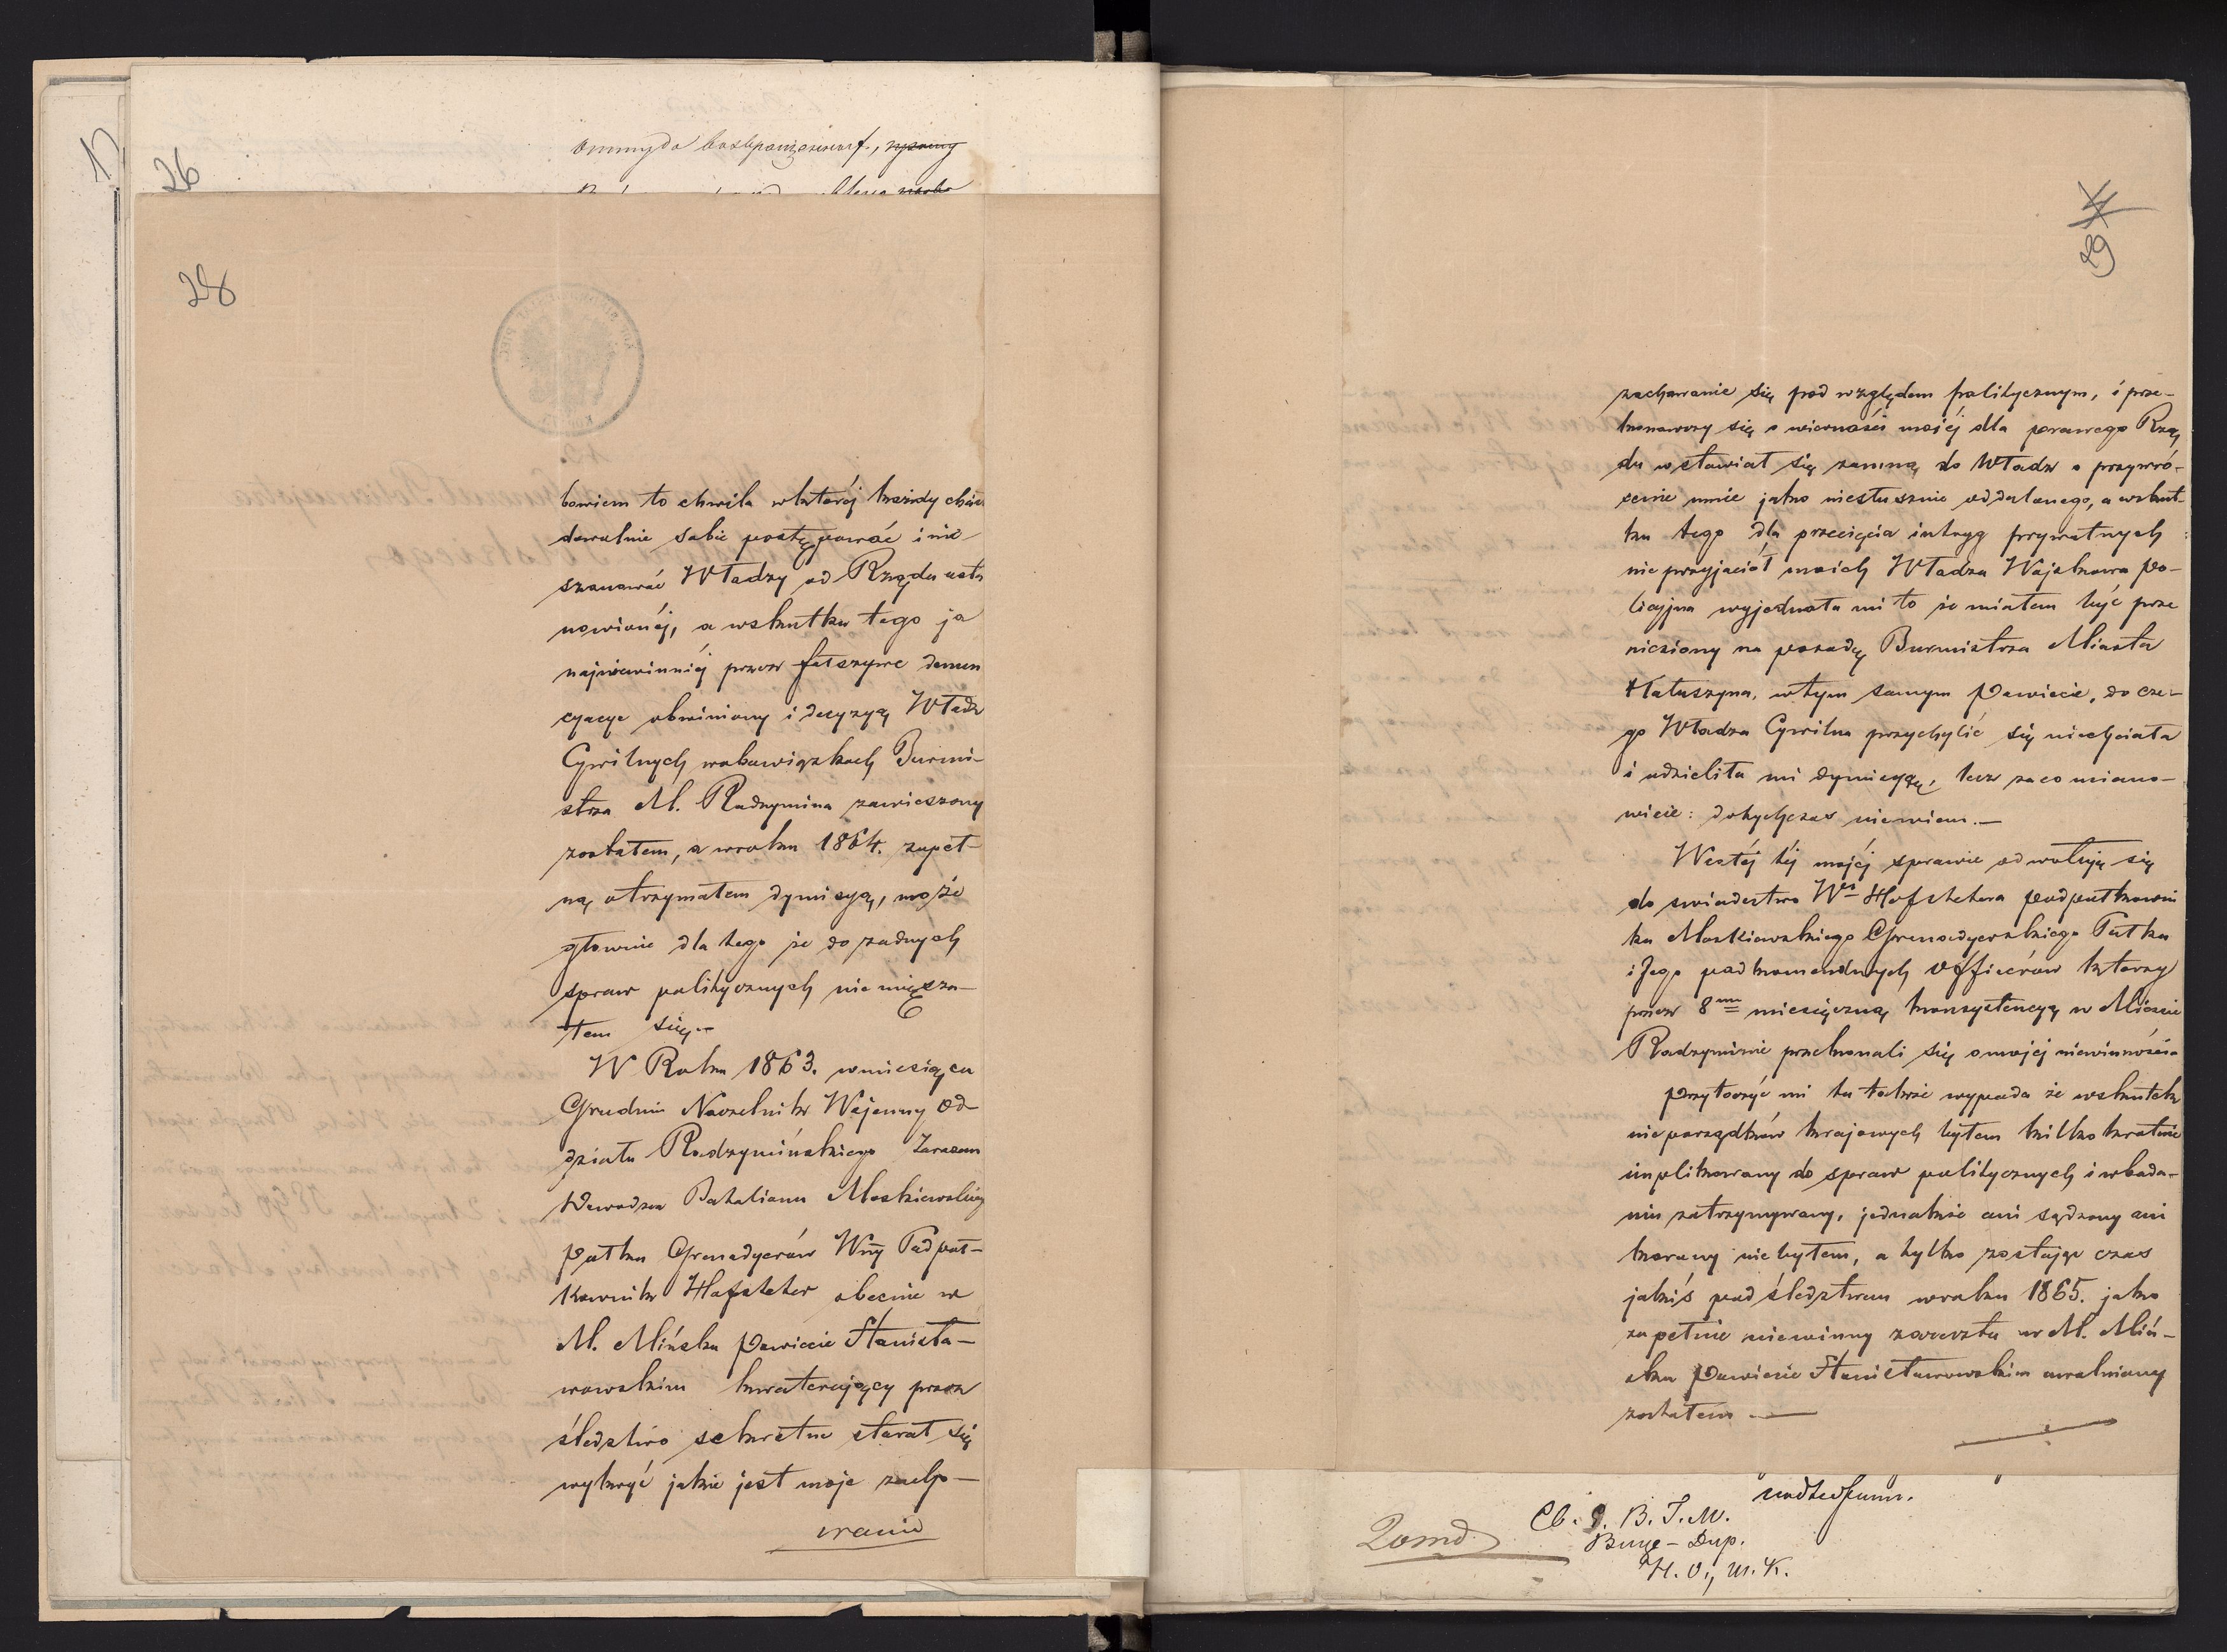 26
28
bowiem to chwila w któréj każdy chciał
dowolnie sobie postępować i nie
szanować Władzy od Rządu usta
nowionéj, a wskutku tego ja
najniewinniéj przez fałszywe denun
cyacye obwiniony i decyzyą Władz
Cywilnych w obowiązkach Burmi-
strza M. Radzymina zawieszony
zostałem, a w roku 1864. zupeł-
ną otrzymałem dymisyą, może
głownie dla tego że do żadnych
spraw politycznych nie miesza-
łem się.-
W Roku 1863. w miesiącu
Grudniu Naczelnik Wojenny Od-
działu Radzymińskiego Zarazem
Dowodzca Batalionu Moskiewskieg
Pułku Grenadyerów Wny Podpuł-
kownik Hofsteter obecnie w
M. Mińsku Powiecie Stanisła-
wowskim kwaterujący przez
śledztwo sekretne starał się
wykryć jakie jest moje zacho-
wanie
29
zachowanie się pod względem politycznym, i prze-
konawszy się o wierności mojéj dla prawego Rzą
du wstawiał się zamną do Władz o przywró-
cenie mnie jako niesłusznie oddalonego, a wskut-
ku tego dla przecięcia intryg prywatnych
nieprzyjaciół moich Władza Wojskowa Po-
licyjna wyjednała mi to że miałem być prze
niesiony na posadę Burmistrza Miasta
Kałuszyna, w tym samym Powiecie, do cze-
go Władza Cywilna przychylić się niechciała
i udzieliła mi dymissyą, lecz za co miano-
wicie: dotychczas niewiem.-
W całéj téj mojéj sprawie odwołuję się
do swiadectwa Wgo Hofstetera Podpułkowni
ka Moskiewskiego Grenadyerskiego Pułku
i Jego podkomendnych Officerów którzy
przez 8mio miesięczną konsystencyą w Mieście
Radzyminie przekonali się o mojej niewinności.
Przytoczyć mi tu także wypada że wskutek
nieporządków krajowych byłem kilkokrotnie
implikowany do spraw politycznych i w bada-
niu zatrzymywany, jednakże ani sądzony ani
karany nie byłem, a tylko zostając czas
jakiś pod śledztwem w roku 1865. jako
zupełnie niewinny z aresztu w M. Miń-
sku Powiecie Stanisławowskim uwolniony
zostałem. —